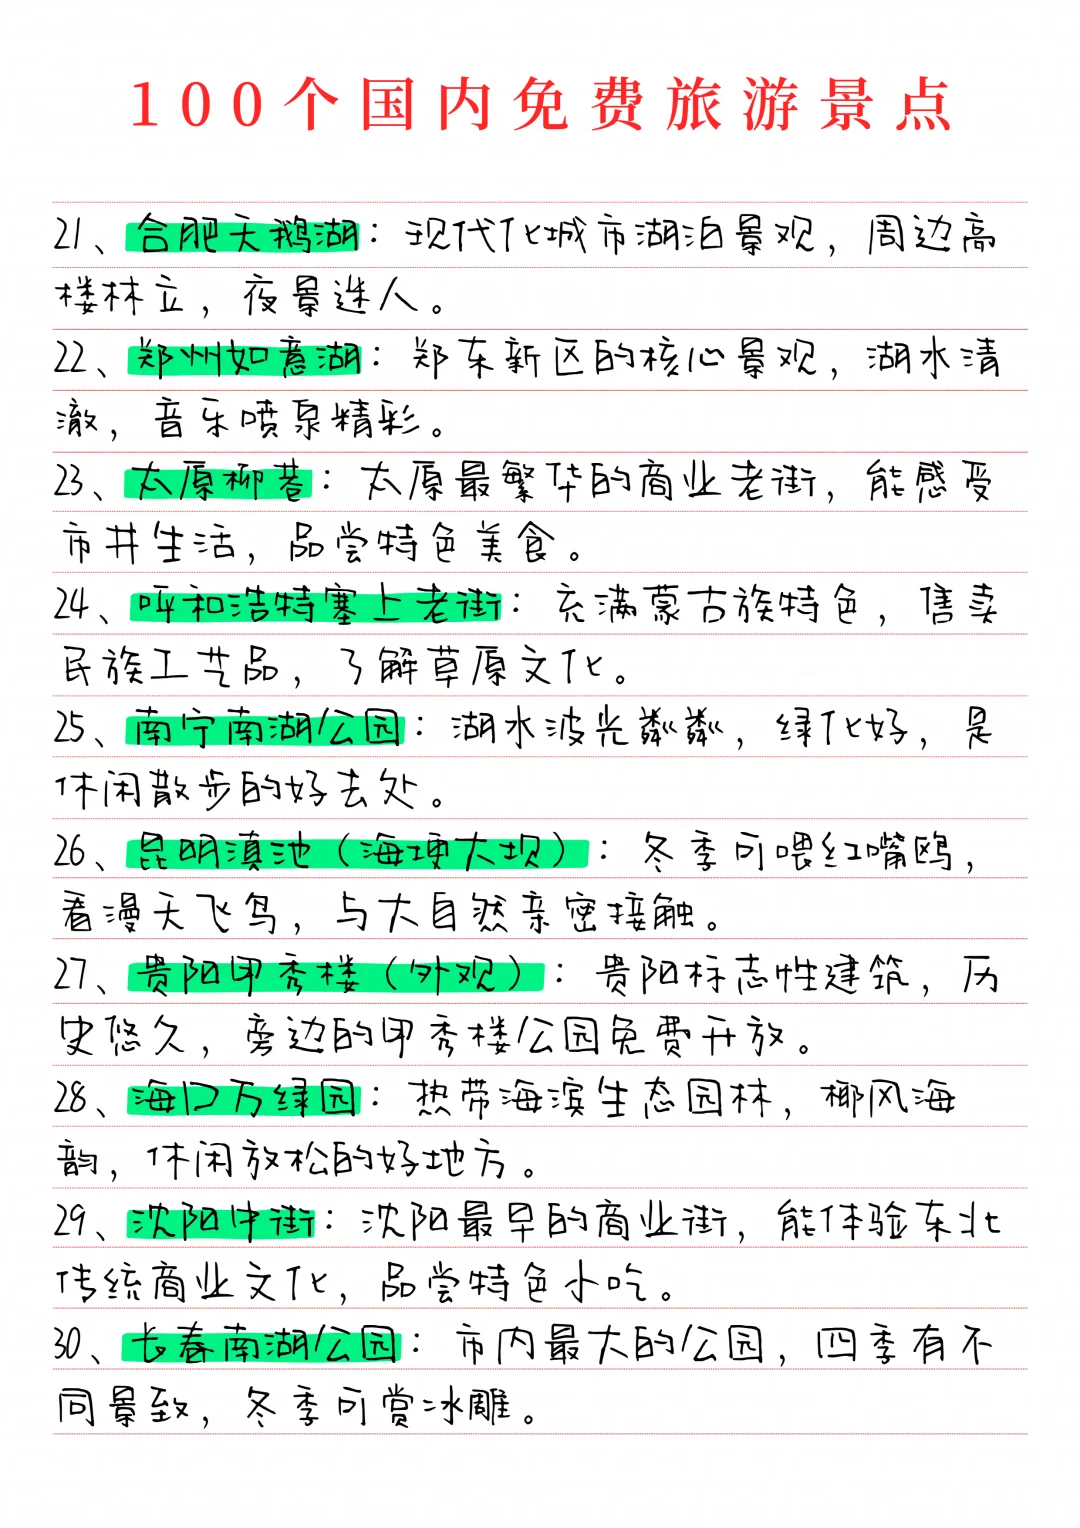 100个国内免费旅游景点
21、合肥天鹅湖：现代化城市湖泊景观，周边高
楼林立，夜景迷人。
22、郑州如意湖：郑东新区的核心景观，湖水清
澈，音乐喷泉精彩。
23、太原柳巷：太原最繁华的商业老街，能感受
市井生活，品尝特色美食。
24、呼和浩特塞上老街：充满蒙古族特色，售卖
民族工艺品，了解草原文化。
25、南宁南湖公园：湖水波光粼粼，绿化好，是
休闲散步的好去处。
26、昆明滇池（海埂大坝）：冬季可喂红嘴鸥，
看漫天飞鸟，与大自然亲密接触。
27、贵阳甲秀楼（外观）：贵阳标志性建筑，历
史悠久，旁边的甲秀楼公园免费开放。
28、海口万绿园：热带海滨生态园林，椰风海
韵，休闲放松的好地方。
29、沈阳中街：沈阳最早的商业街，能体验东北
传统商业文化，品尝特色小吃。
30、长春南湖公园：市内最大的公园，四季有不
同景致，冬季可赏冰雕。